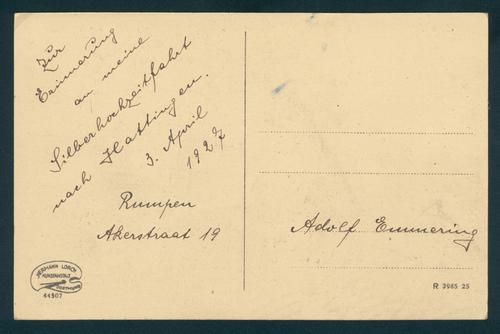 Zur
Erinnerung
an meine
Silberhochzeitfahrt
nach Hattingen.
3. April
1927
Rumpen
Akerstraat 19
Adolf Emmering
HERMANN LORCH
KUNSTANSTALT
DORTMUND
44907
R 3985 25